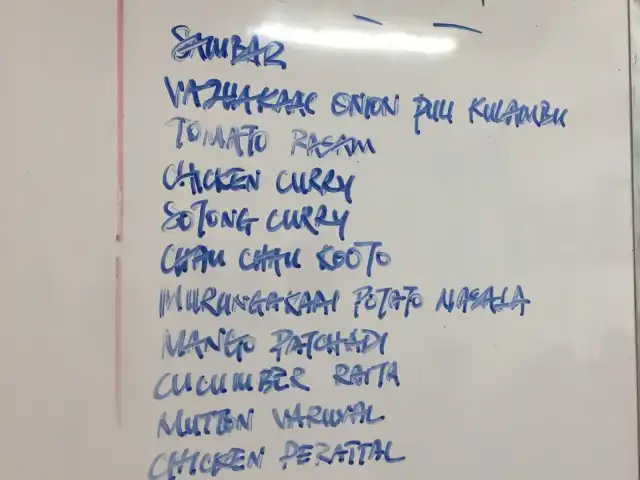 SAMBAR
VAZHAKAAI ONION PULI KULAMBU
TOMATO RASAM
CHICKEN CURRY
SOTONG CURRY
CHAU CHAU KOOTO
MURUNGAKAAI POTATO MASALA
MANGO PATCHADI
CUCUMBER RAITA
MUTTON VARUVAL
CHICKEN PERATTAL